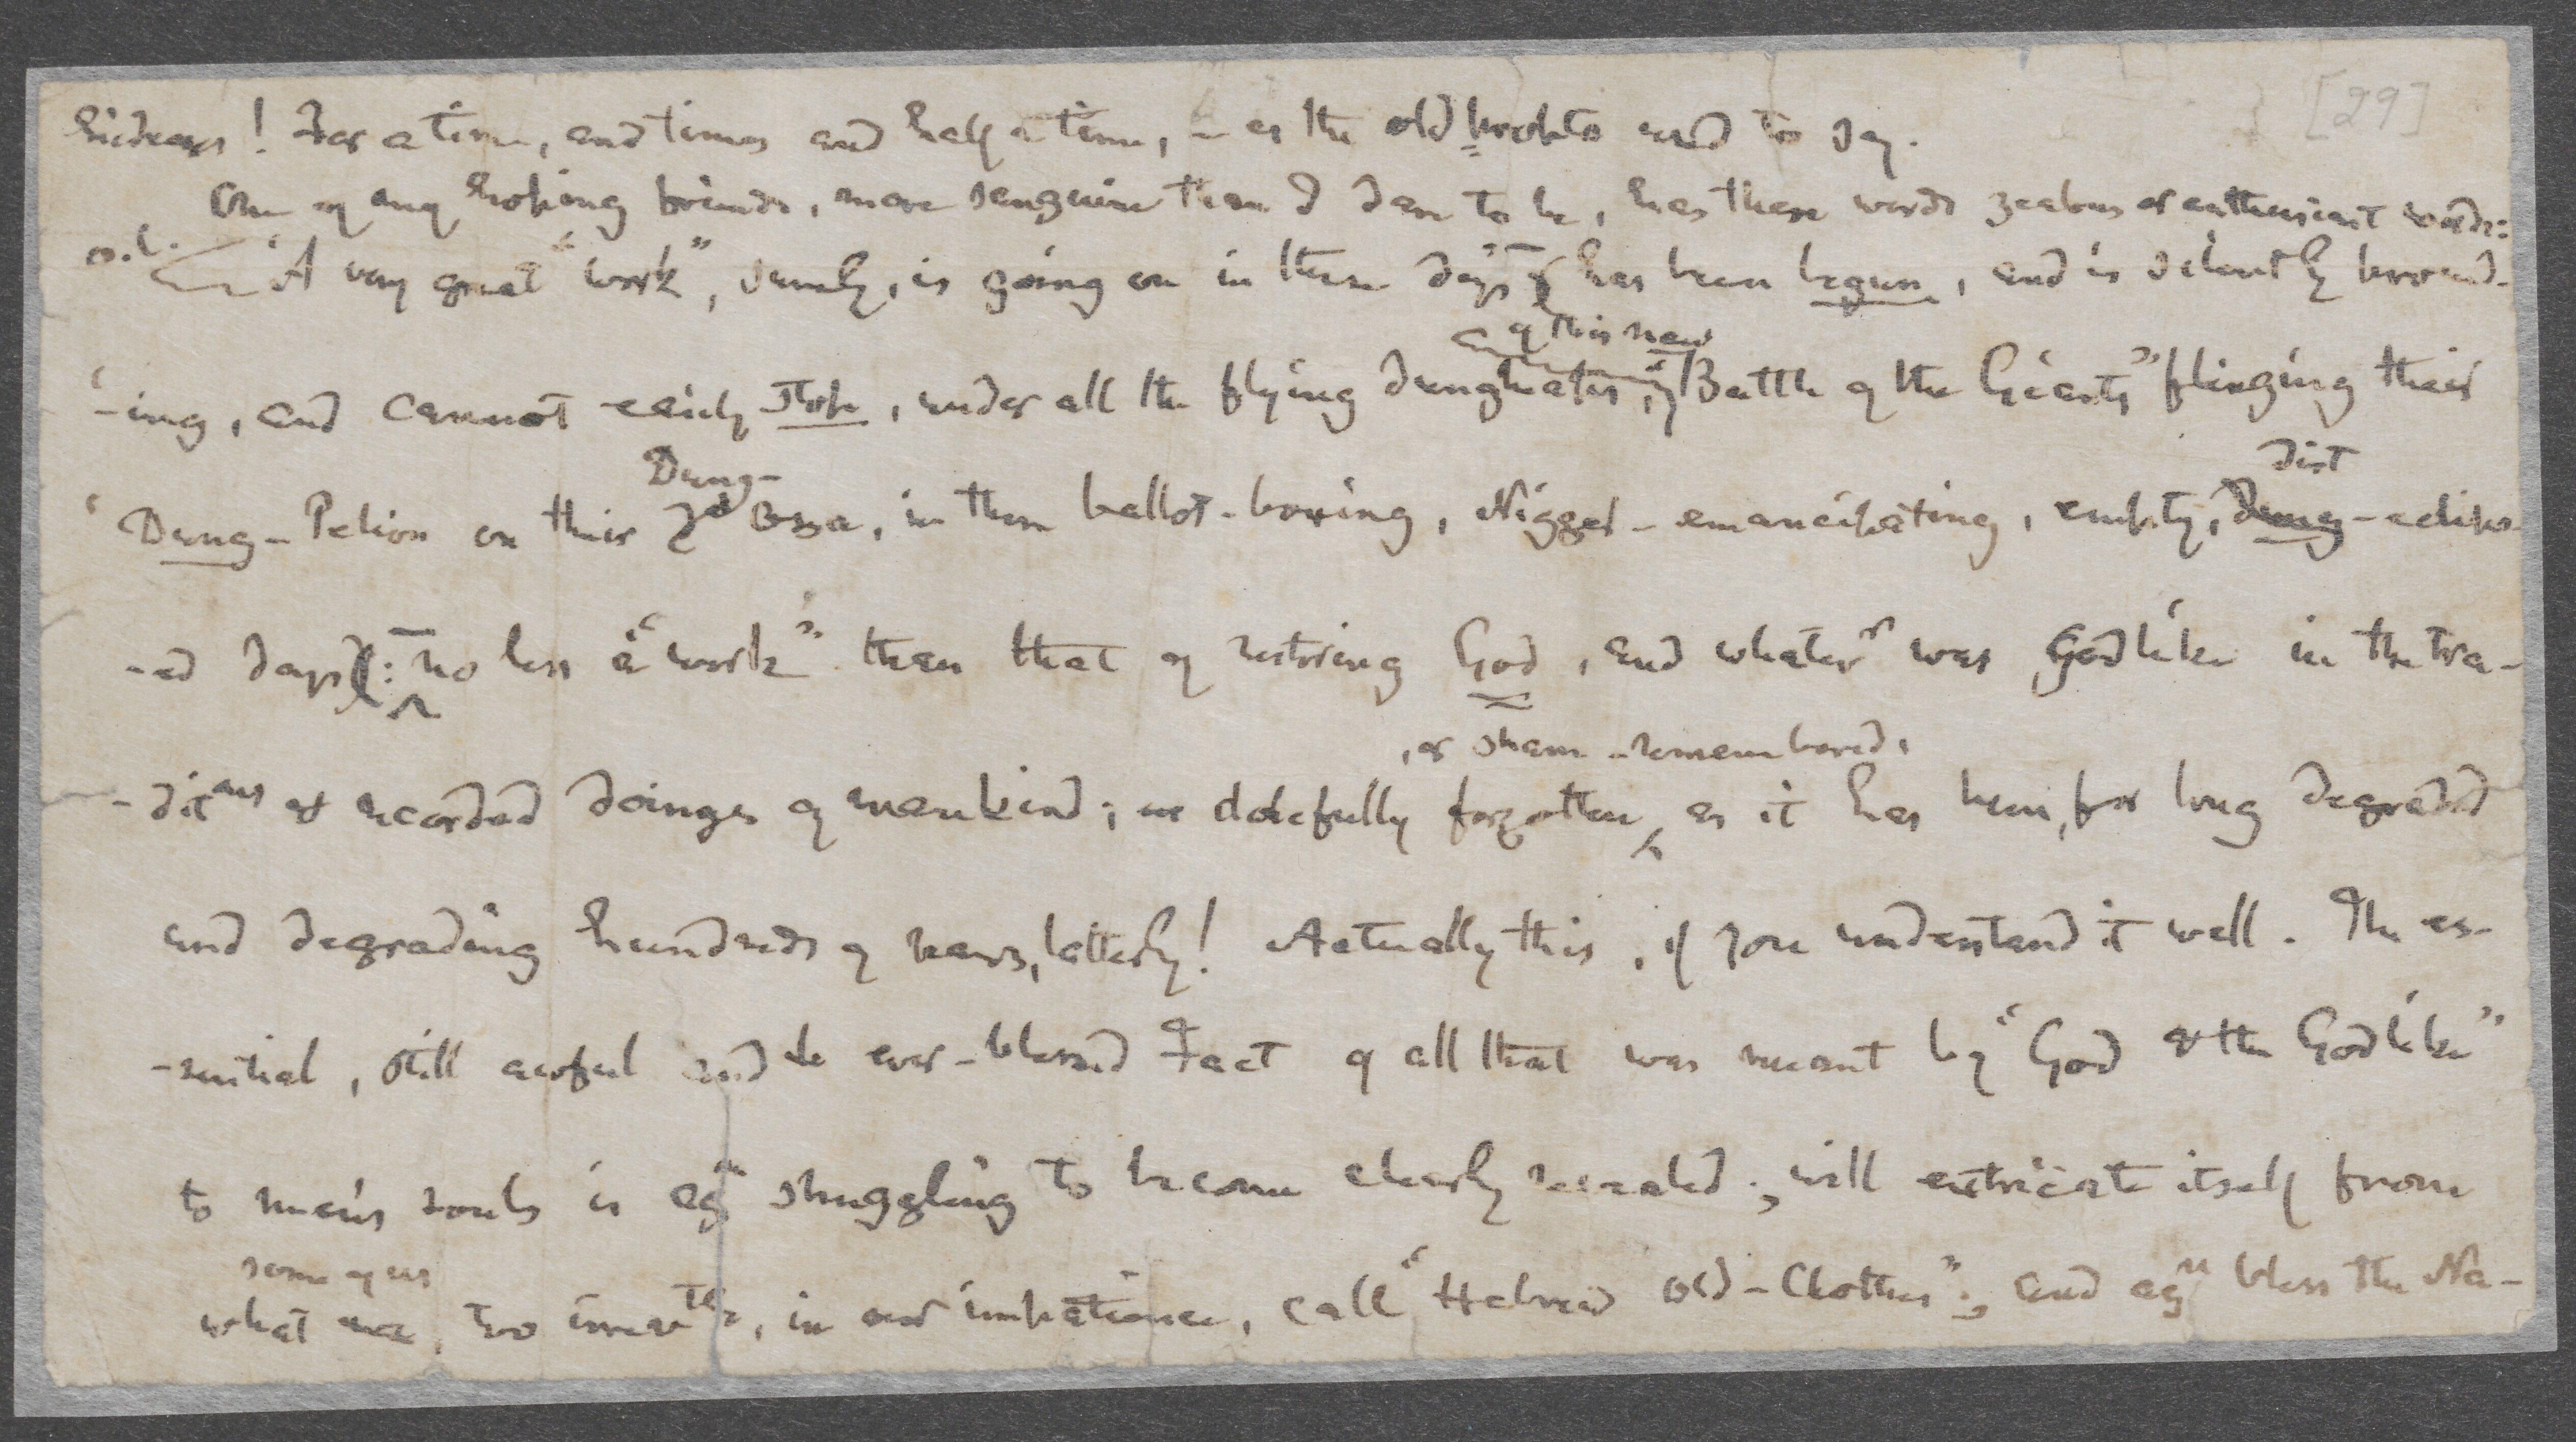 [29]
hideous! For a time, and times and half a time, – as the old prophets used to say.
One of my hoping friends, more sanguine than I dare to be, has these words zealous or enthusiast words:
o.l. 'A very great "work", surely, is going on in these days, – has been begun, and is silently proceed-
'-ing, and cannot easily stop, under all the flying dungheaps,
of this new
"Battle of the Giants" flinging their
Dung-
dirt
'Dung-Pelion on their Ossa, in these ballot-boxing, Nigger-emancipating, empty, Dung-eclips-
-ed days: – no less a "work" than that of restoring God, and whatevr was Godlike in the tra-
, or sham-remembered,
-ditns & recorded doings of mankind; dolefully forgotten as it has been, for long degraded
and degrading hundreds of years, latterly! Actually this, if you understand it well. The es-
-sential, still awful and ever-blessed Fact of all that was meant by "God & the Godlike"
to men's souls is agn struggling to become clearly revealed; will extricate itself from
some of us
what we, too irrevtly, in our impatience, call "Hebrew Old-Clothes"; and agn bless the Na-